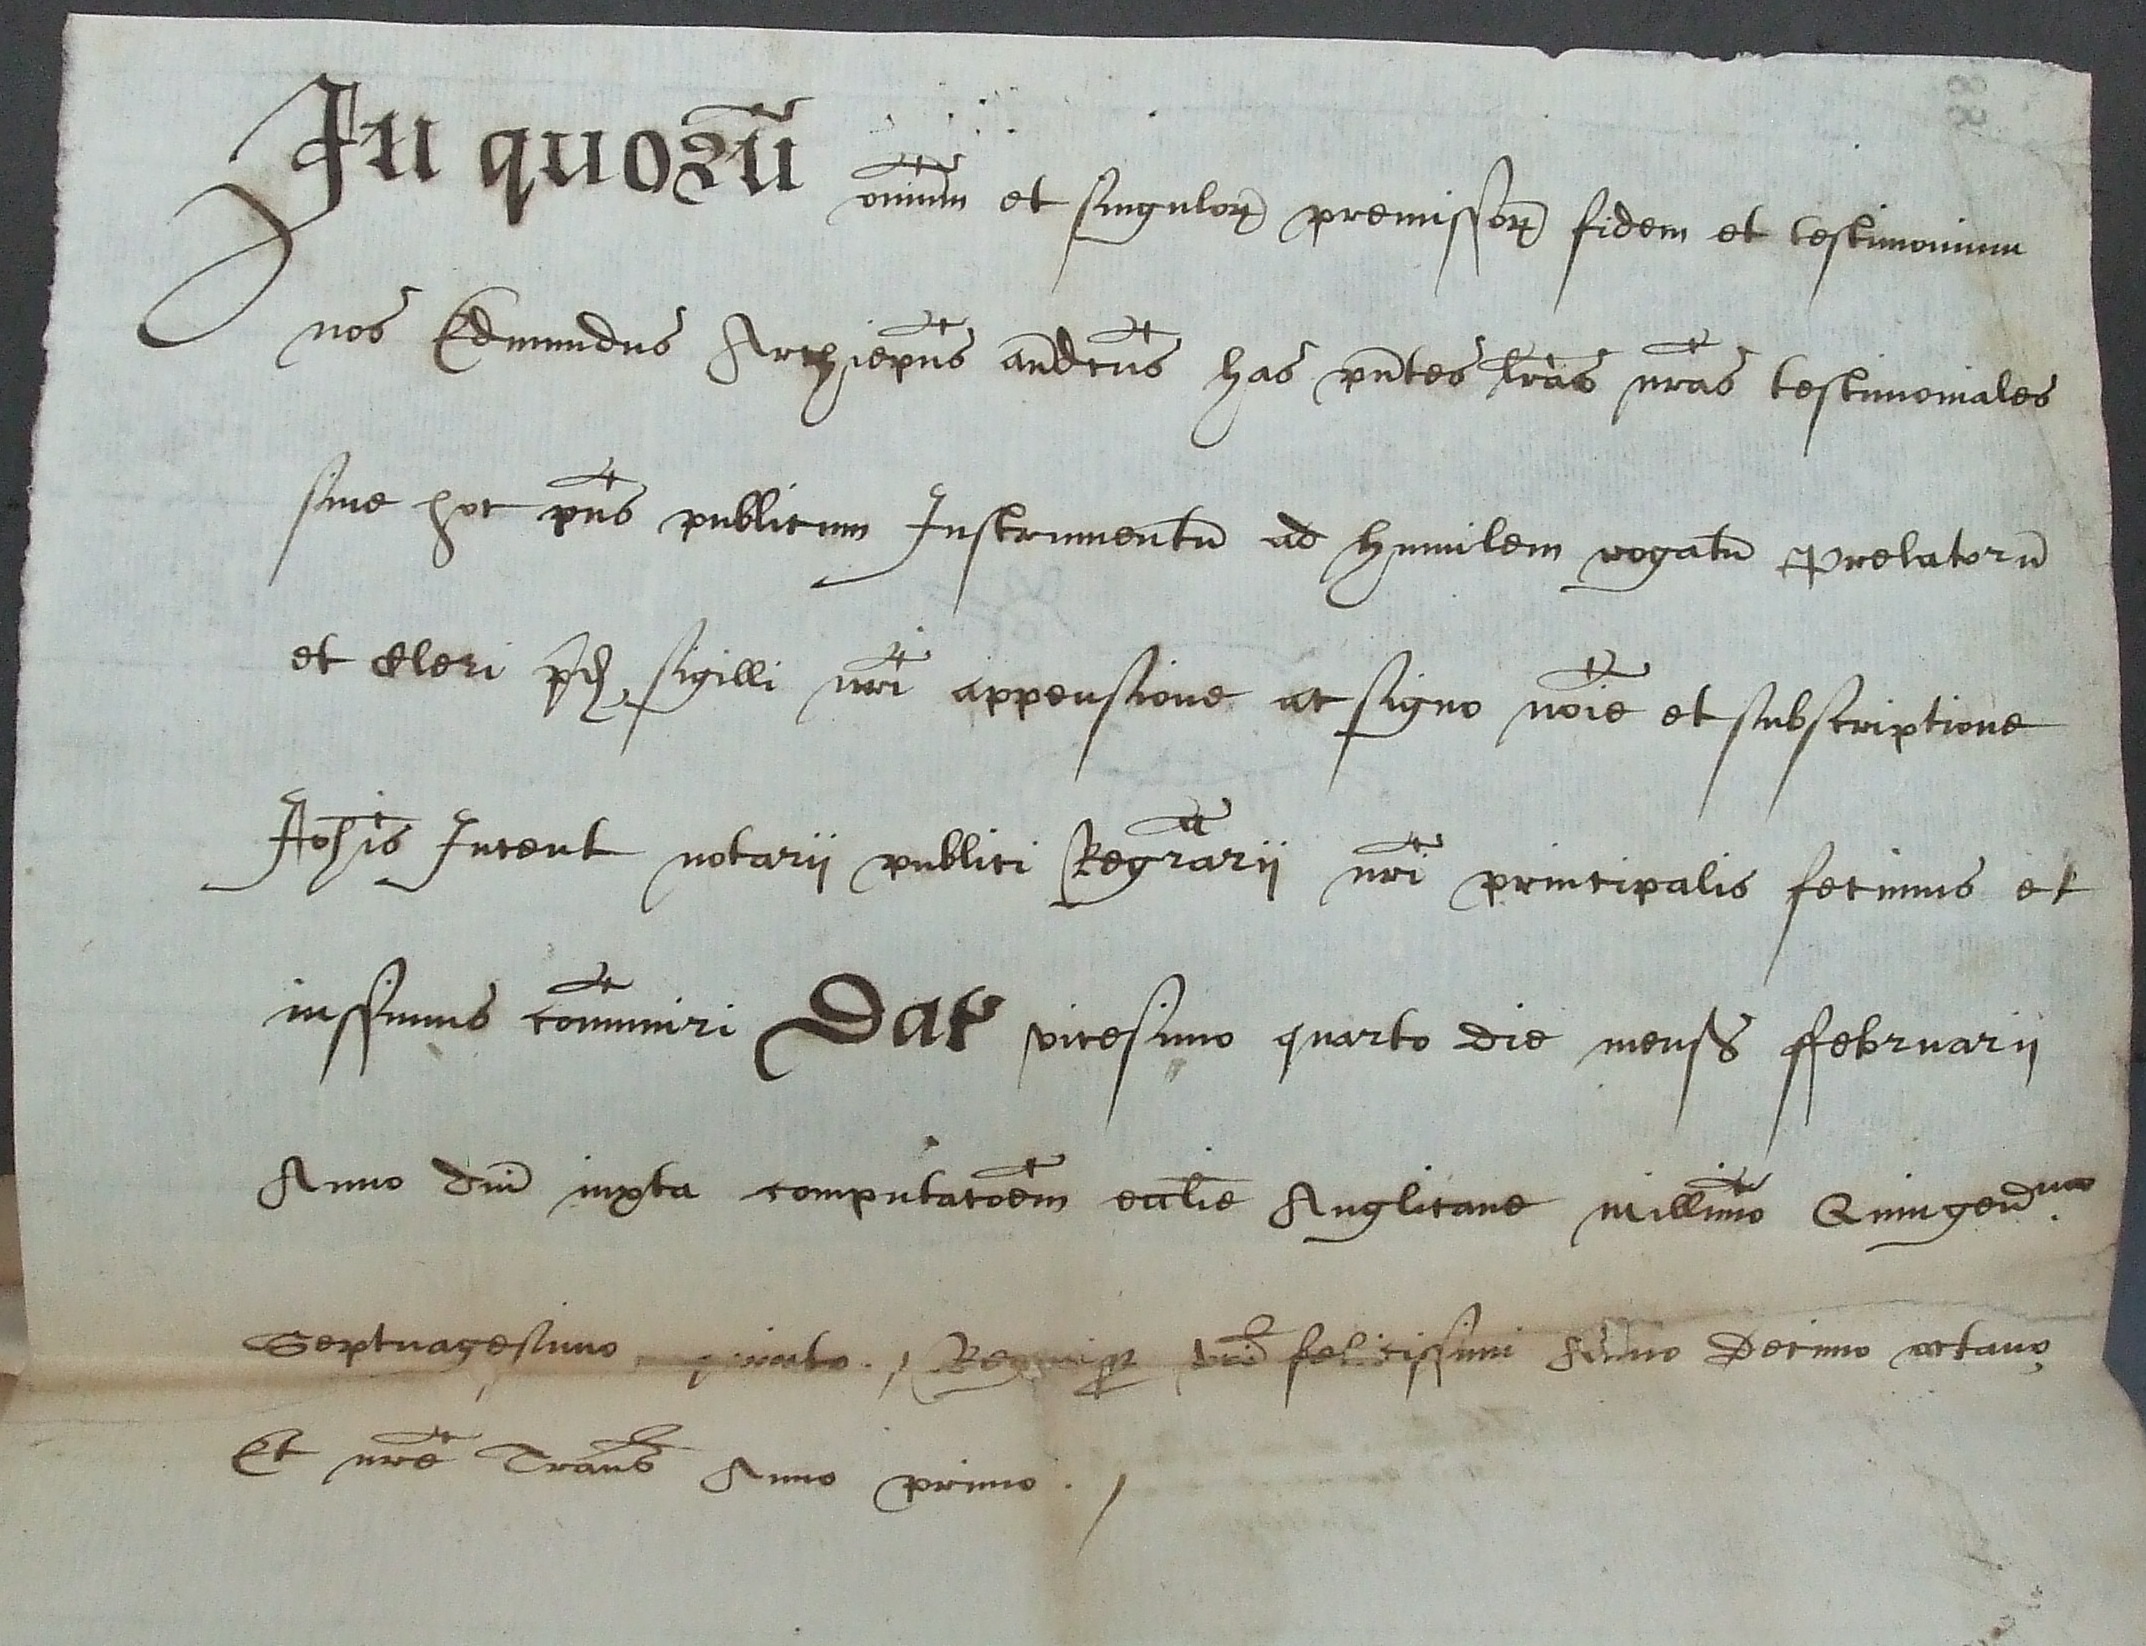 In quorū
om̄iū et singulorꝝ premissorꝝ fidem et testimonium
nos Edmundus Archiep̄us antedc̄us has p̄ntes lr̄as nr̄as testimoniales
siue hoc p̄ns publicum Instrumentū ad humilem rogatū Prelatorū
et Cleri p̄d sigilli nr̄i appensione ac signo no͞i͞e et subscriptione
Joh̄is Incent notarii publici Regr̄arii nr̄i principalis fecimus et
iussimus com̄uniri Dat vicesimo quarto die mensꝭ ffebruarii
Anno dn̄i iuxta computac͞o͞em eccl̄ie Anglicane Mill̄imo Quingen̄mo
Septuagesimo quinto. felicissimi Anno Decimo octauo
Et nr̄e Trans̄ Anno primo./
88